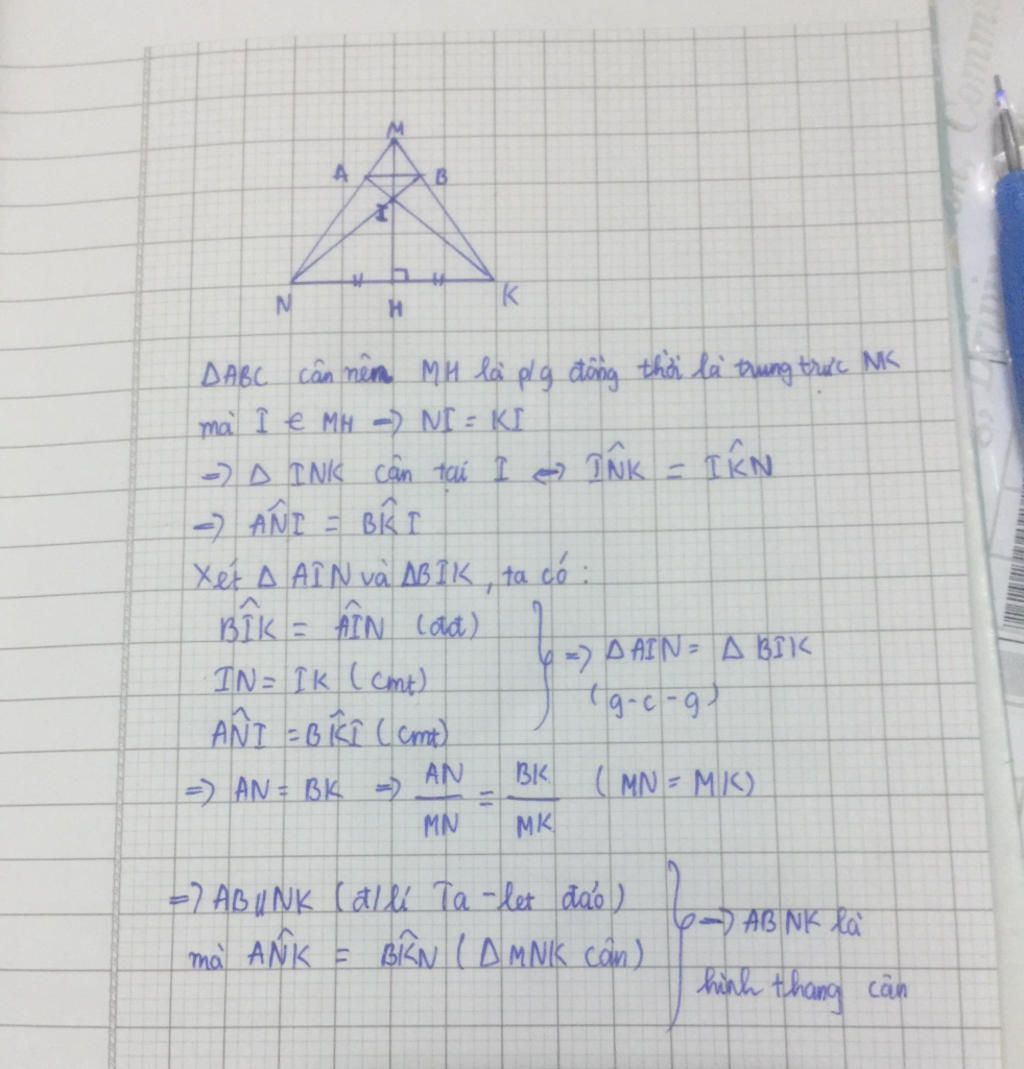 M
A
B
I
N
H
K
ΔABC cân nên MH là p/g đồng thời là trung trực NK
mà I ∈ MH => NI = KI
=> Δ INK cân tại I <=> IN̂K = IK̂N
=> AN̂I = BK̂I
Xét Δ AIN và ΔBIK, ta có:
BÎK = AÎN (đđ)
IN = IK (cmt)
AN̂I = BK̂I (cmt)
=> ΔAIN = Δ BIK
(g-c-g)
=> AN = BK => AN/MN = BK/MK (MN = MK)
=> AB//NK (đ/lí Ta-let đảo)
mà AN̂K = BK̂N (Δ MNK cân)
=> ABNK là
hình thang cân
Comm